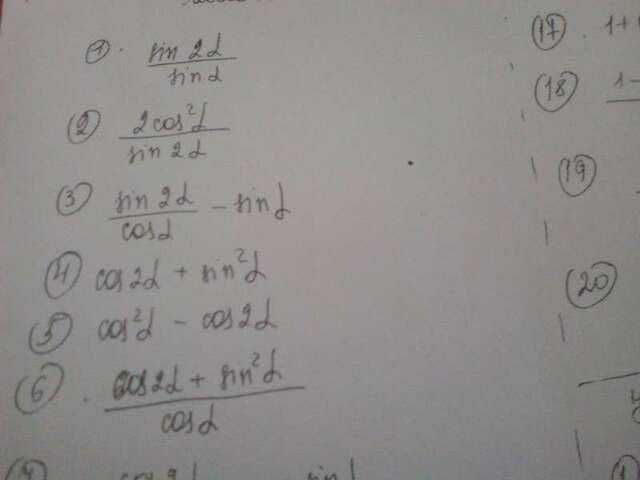 ① . sin 2α / sin α
② 2cos²α / sin 2α
③ sin 2α / cos α − sin α
④ cos 2α + sin²α
⑤ cos²α − cos 2α
⑥ . cos 2α + sin²α / cos α
⑰ . 1+
⑱ 1−
⑲
⑳